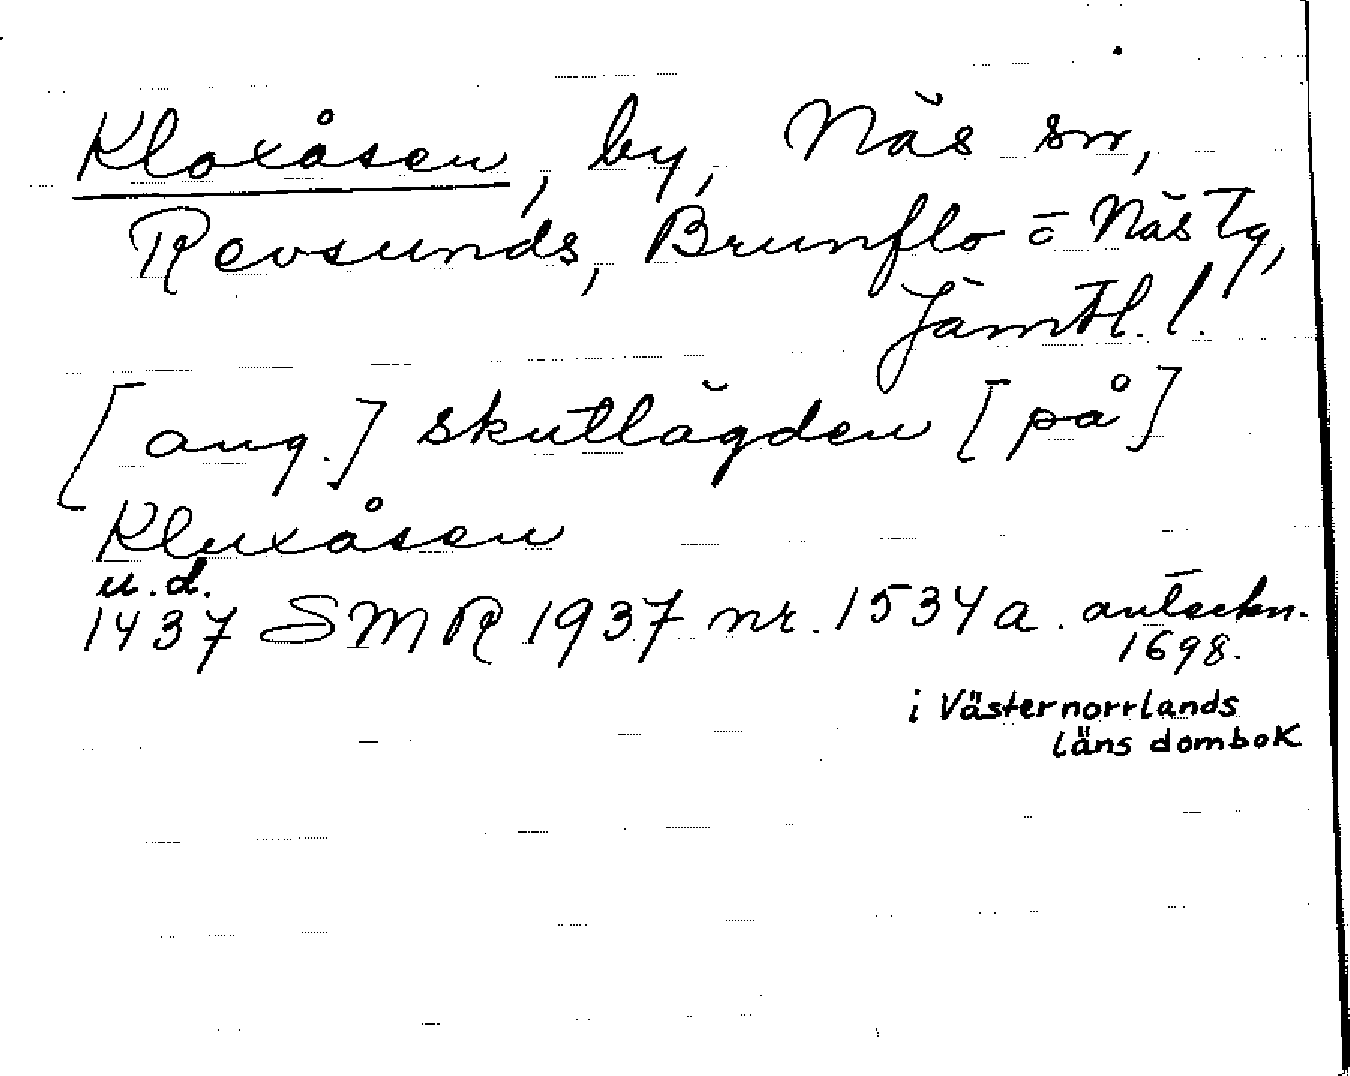 Kloxåsen, by, Näs sn,
Revsunds, Brunflo o Näs tg,
Jämtl. l.
[ang.] skutlägden [på]
Kluxåsen
u.d.
1437 SMR 1937 nr. 1534a. anteckn.
1698.
i Västernorrlands
läns dombok